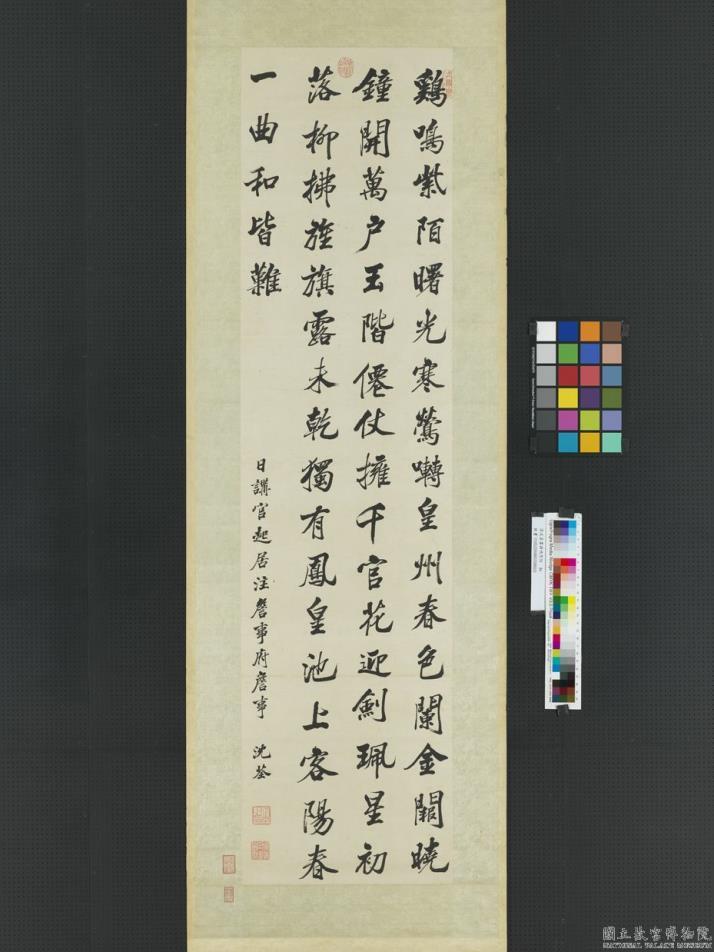 鷄鳴紫陌曙光寒鶯囀皇州春色闌金闕曉
鐘開萬户玉階僊仗擁千官花迎劍珮星初
落柳拂旌旗露未乾獨有鳳皇池上客陽春
一曲和皆難
日講官起居注詹事府詹事 沈荃
國立故宮博物院
NATIONAL PALACE MUSEUM